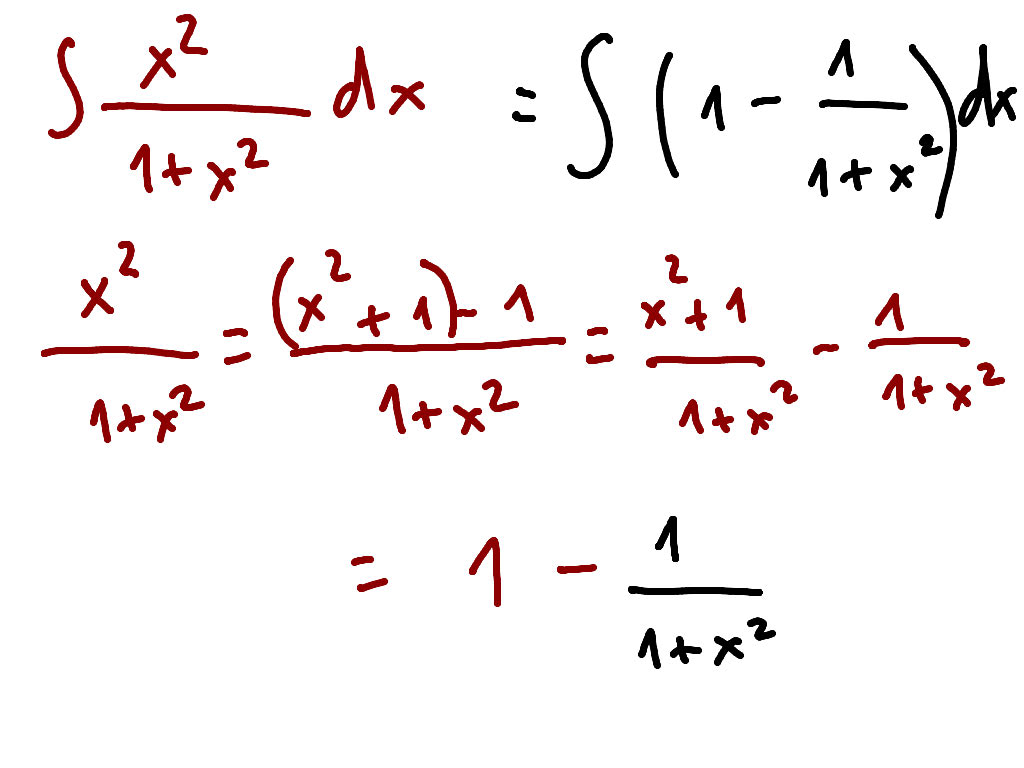 ∫ x² / (1+x²) dx = ∫ (1 - 1 / (1+x²)) dx
x² / (1+x²) = ((x²+1) - 1) / (1+x²) = (x²+1) / (1+x²) - 1 / (1+x²)
= 1 - 1 / (1+x²)